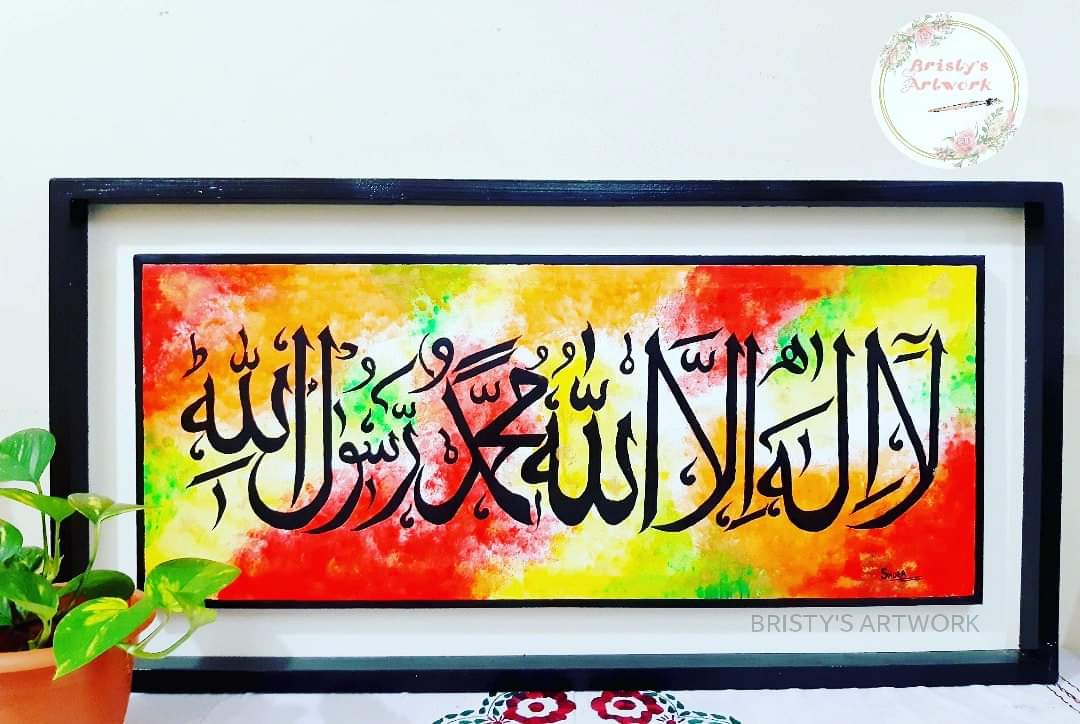 Bristy's
Artwork
لَآ اِلٰهَ اِلَّا اللّٰهُ مُحَمَّدٌ رَّسُوْلُ اللّٰهِ ؕ
BRISTY'S ARTWORK